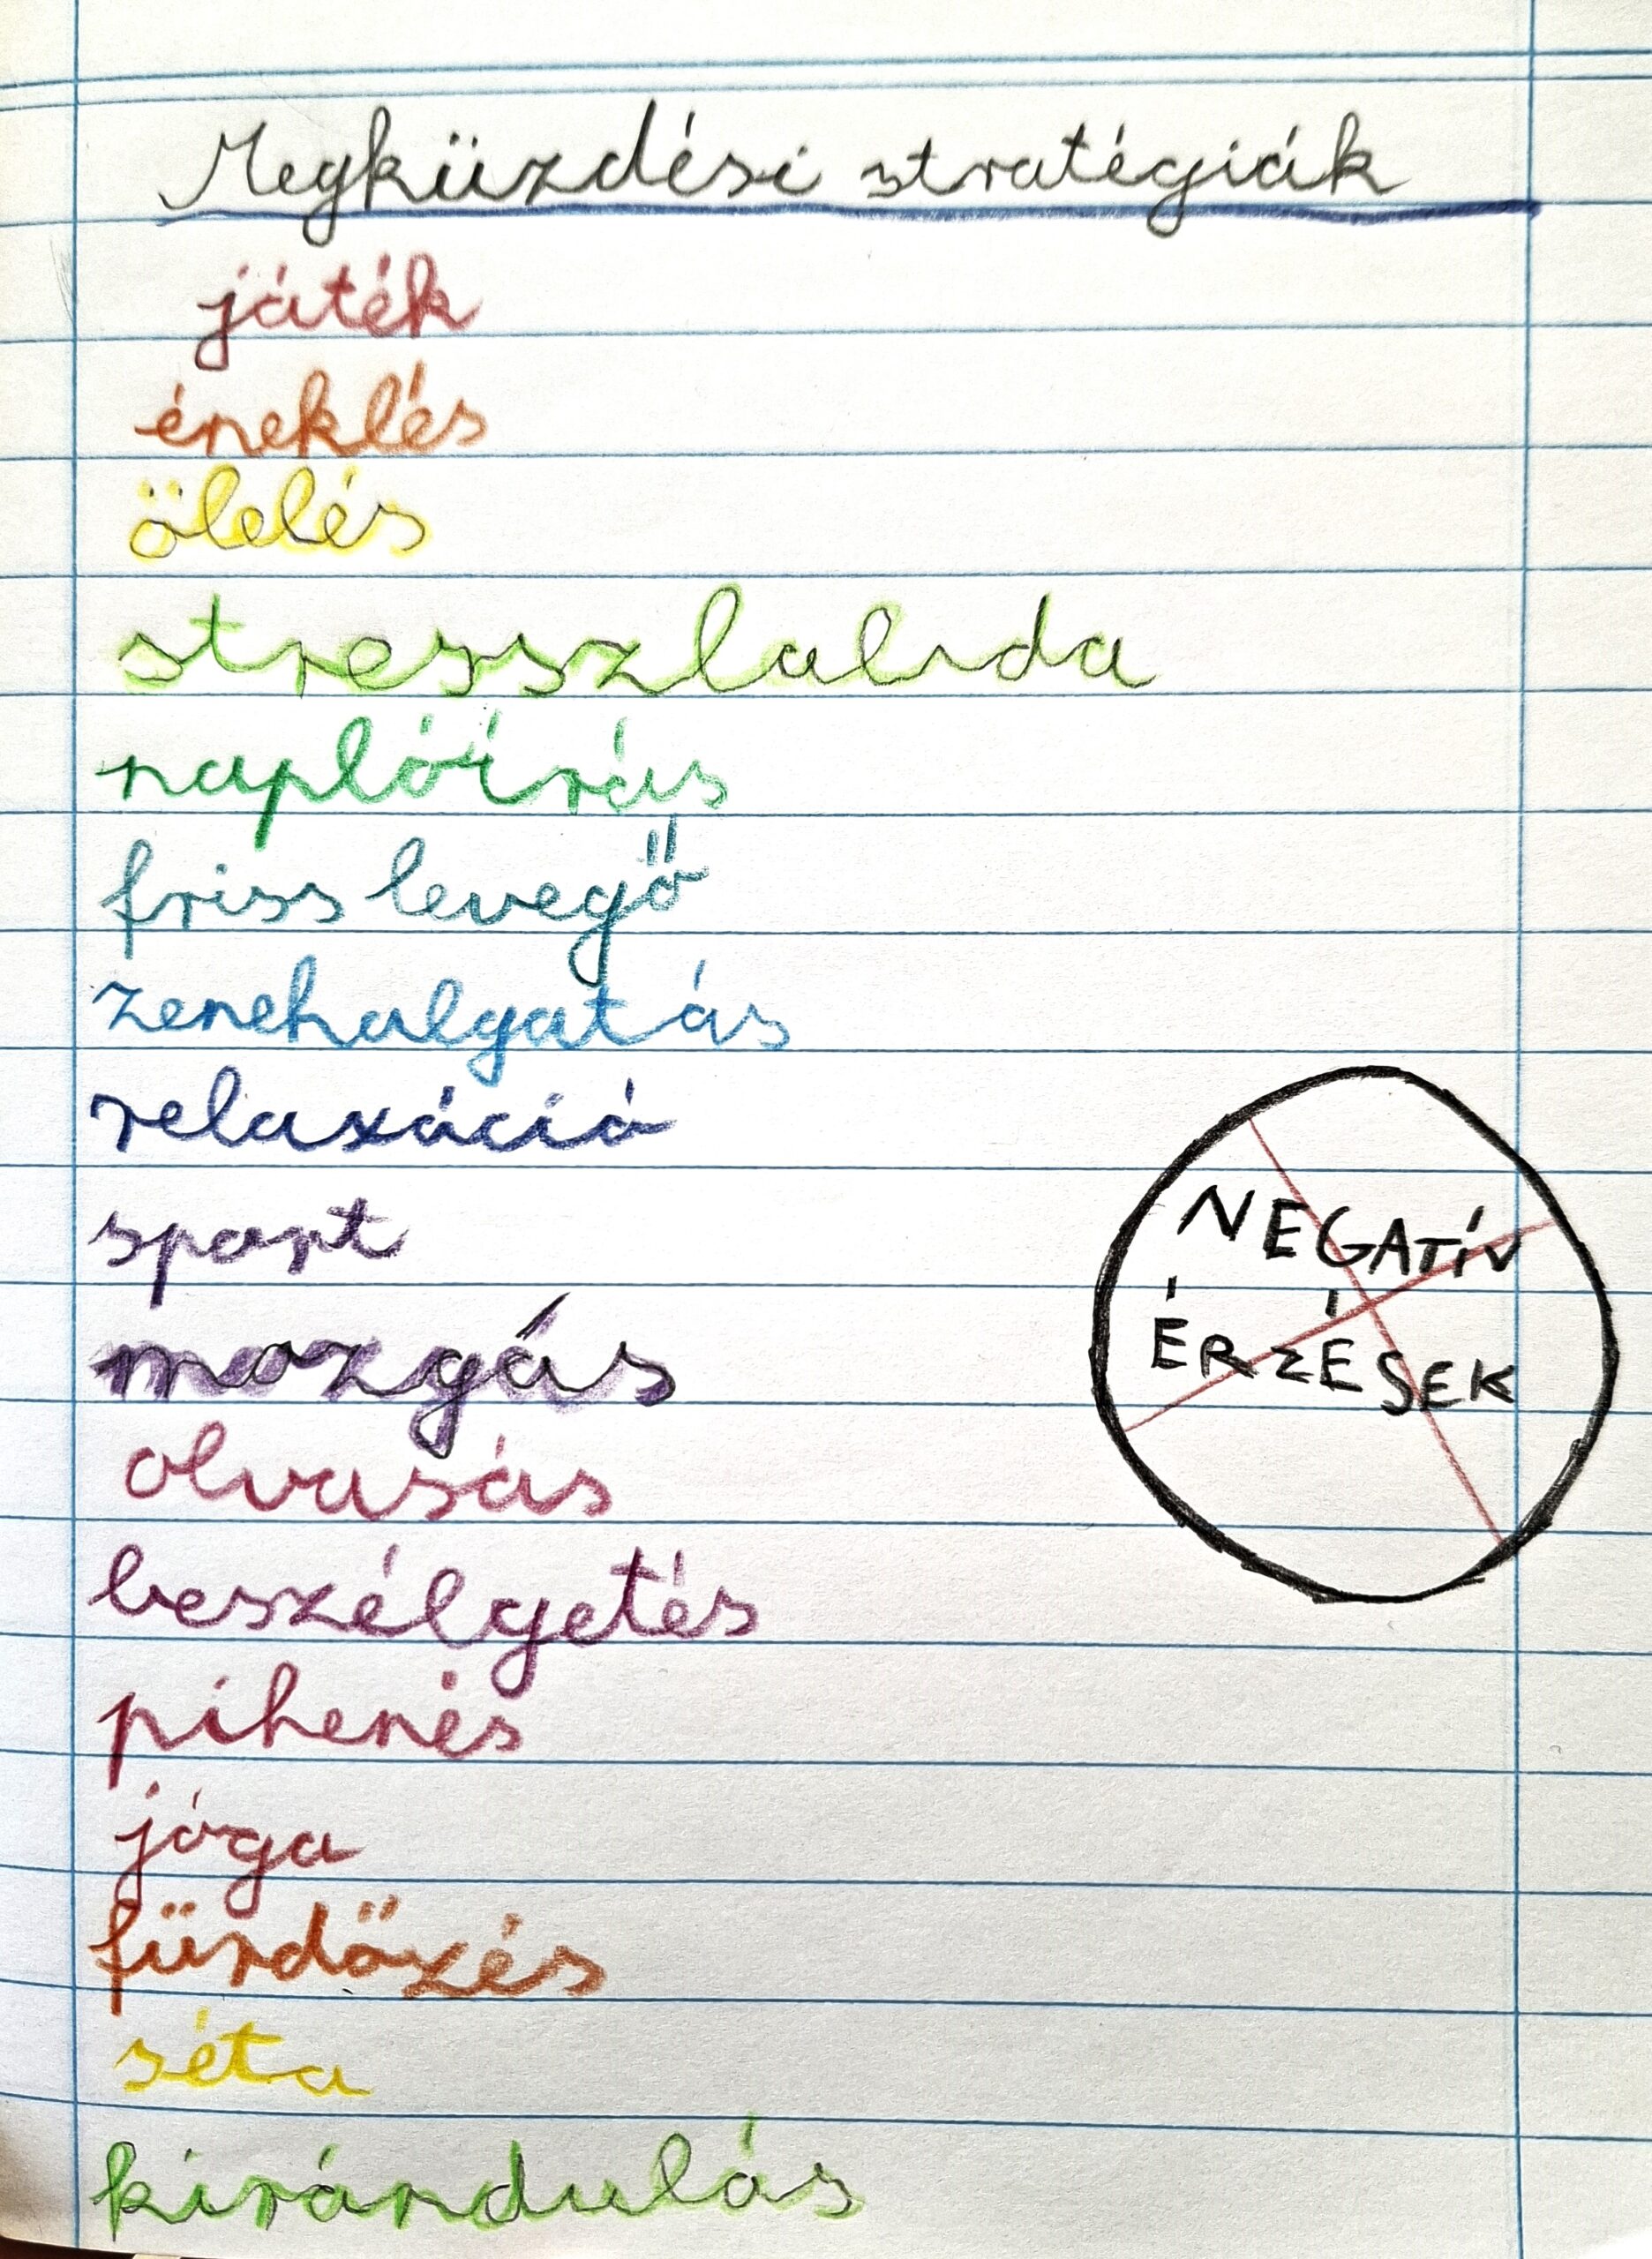 Megküzdési stratégiák
játék
éneklés
ölelés
stresszlabda
naplóírás
friss levegő
zenehalgatás
relaxáció
sport
mozgás
olvasás
beszélgetés
pihenés
jóga
fürdőzés
séta
kirándulás
NEGATÍV
ÉRZÉSEK